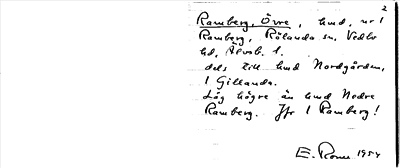 2
Ramberg, Övre, hmd. nr 1
Ramberg, Rölanda sn, Vedbo
hd, Älvsb. l.
dels till hmd Nordgården,
1 Gillanda.
Låg högre än hmd Nedre
Ramberg. Jfr 1 Ramberg!
E. 1954